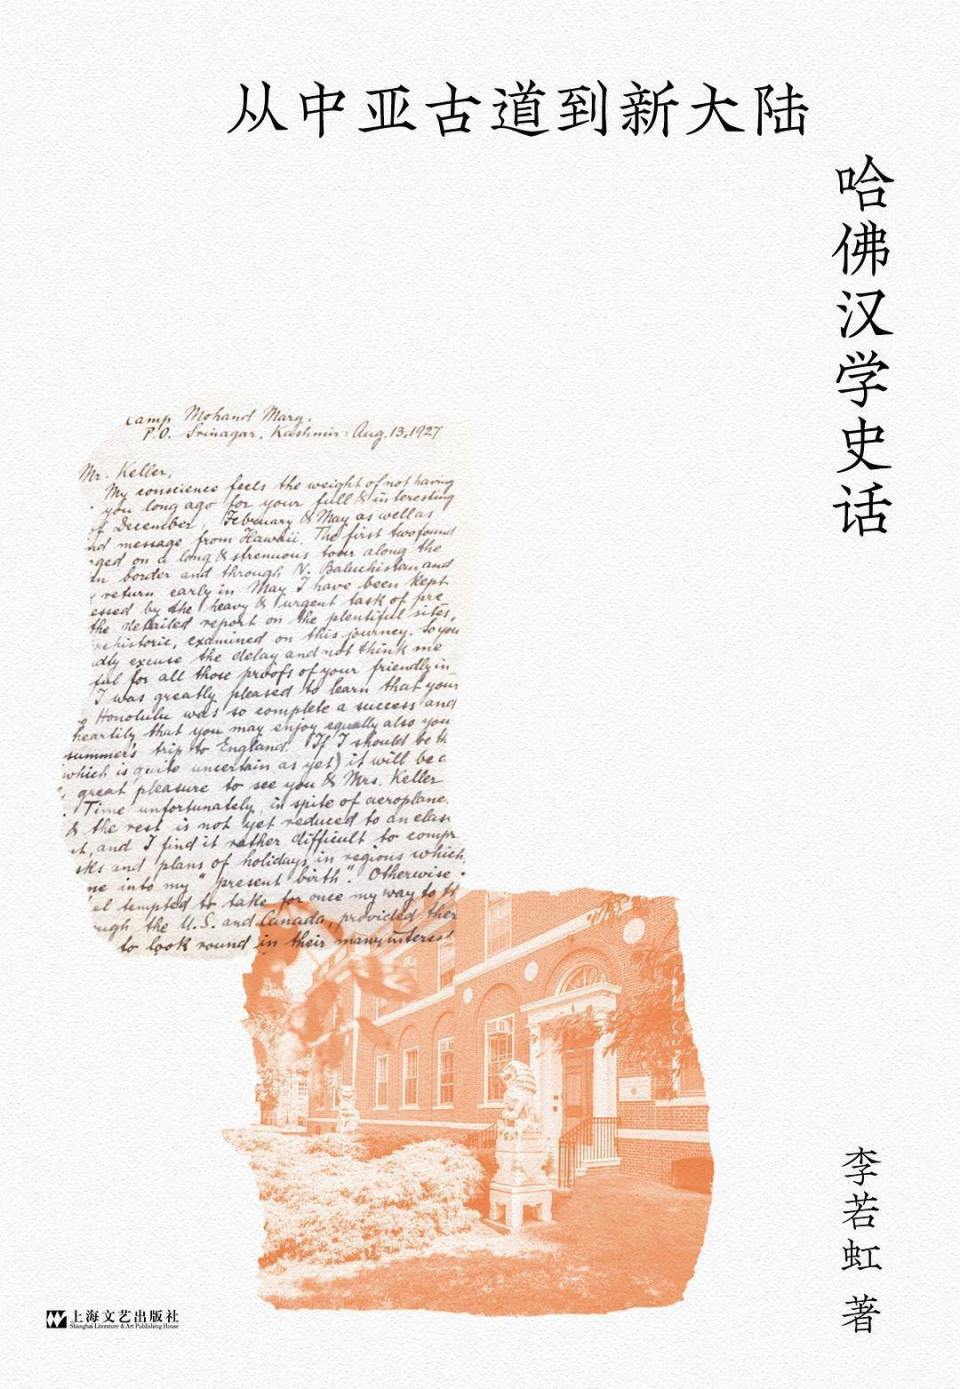 从中亚古道到新大陆
哈佛汉学史话
Camp Mohand Marg.
P.O. Srinagar, Kashmir: Aug.13,1927
Mr. Keller,
My conscience feels the weight of not having
you long ago for your full & interesting
of December, February & May as well as
nd message from Hawaii. The first two found
ged on a long & strenuous tour along the
n border and through N. Baluchistan and
return early in May I have been kept
essed by the heavy & urgent task of pre
the detailed report on the plentiful sites,
rehistoric, examined on this journey. So you
dly excuse the delay and not think me
ful for all those proofs of your friendly in
I was greatly pleased to learn that your
Honolulu was so complete a success and
heartily that you may enjoy equally also you
summer's trip to England. If I should be th
which is quite uncertain as yet) it will be a
great pleasure to see you & Mrs. Keller
Time unfortunately, in spite of aeroplane
& the rest is not yet reduced to an elas
t, and I find it rather difficult to compr
sks and plans of holidays in regions which
me into my "present birth". Otherwise
el tempted to take for once my way to th
ough the U.S. and Canada, provided ther
to look round in their many interest
李若虹 著
上海文艺出版社
Shanghai Literature & Art Publishing House